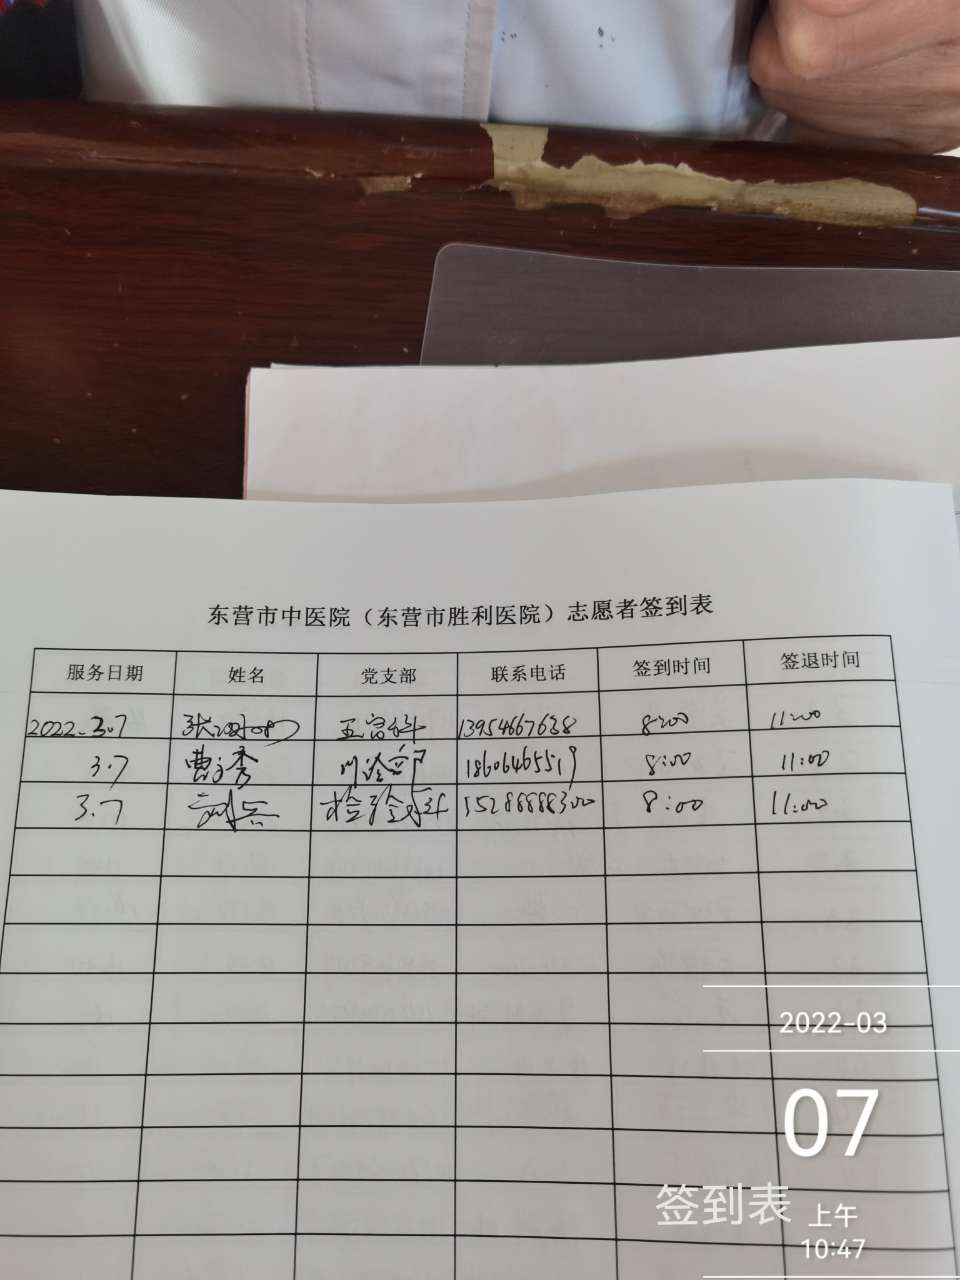 东营市中医院（东营市胜利医院）志愿者签到表
服务日期 姓名 党支部 联系电话 签到时间 签退时间
2022.3.7 五官科 13954667638 8:00 11:00
3.7 曹秀 门诊部 18606465519 8:00 11:00
3.7 检验科 15288888300 8:00 11:00
2022-03
07
签到表 上午
10:47